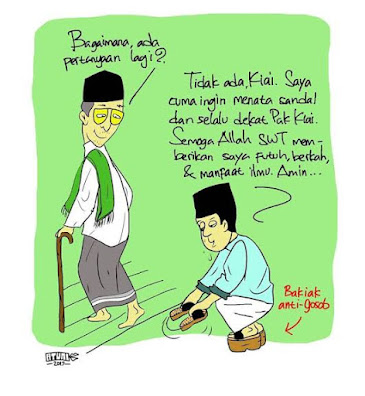 Bagaimana, ada
pertanyaan lagi?
Tidak ada, Kiai. Saya
cuma ingin menata sandal
dan selalu dekat Pak Kiai.
Semoga Allah SWT mem-
berikan saya futuh, berkah,
& manfaat ilmu. Amin...
Bakiak
anti-gosob